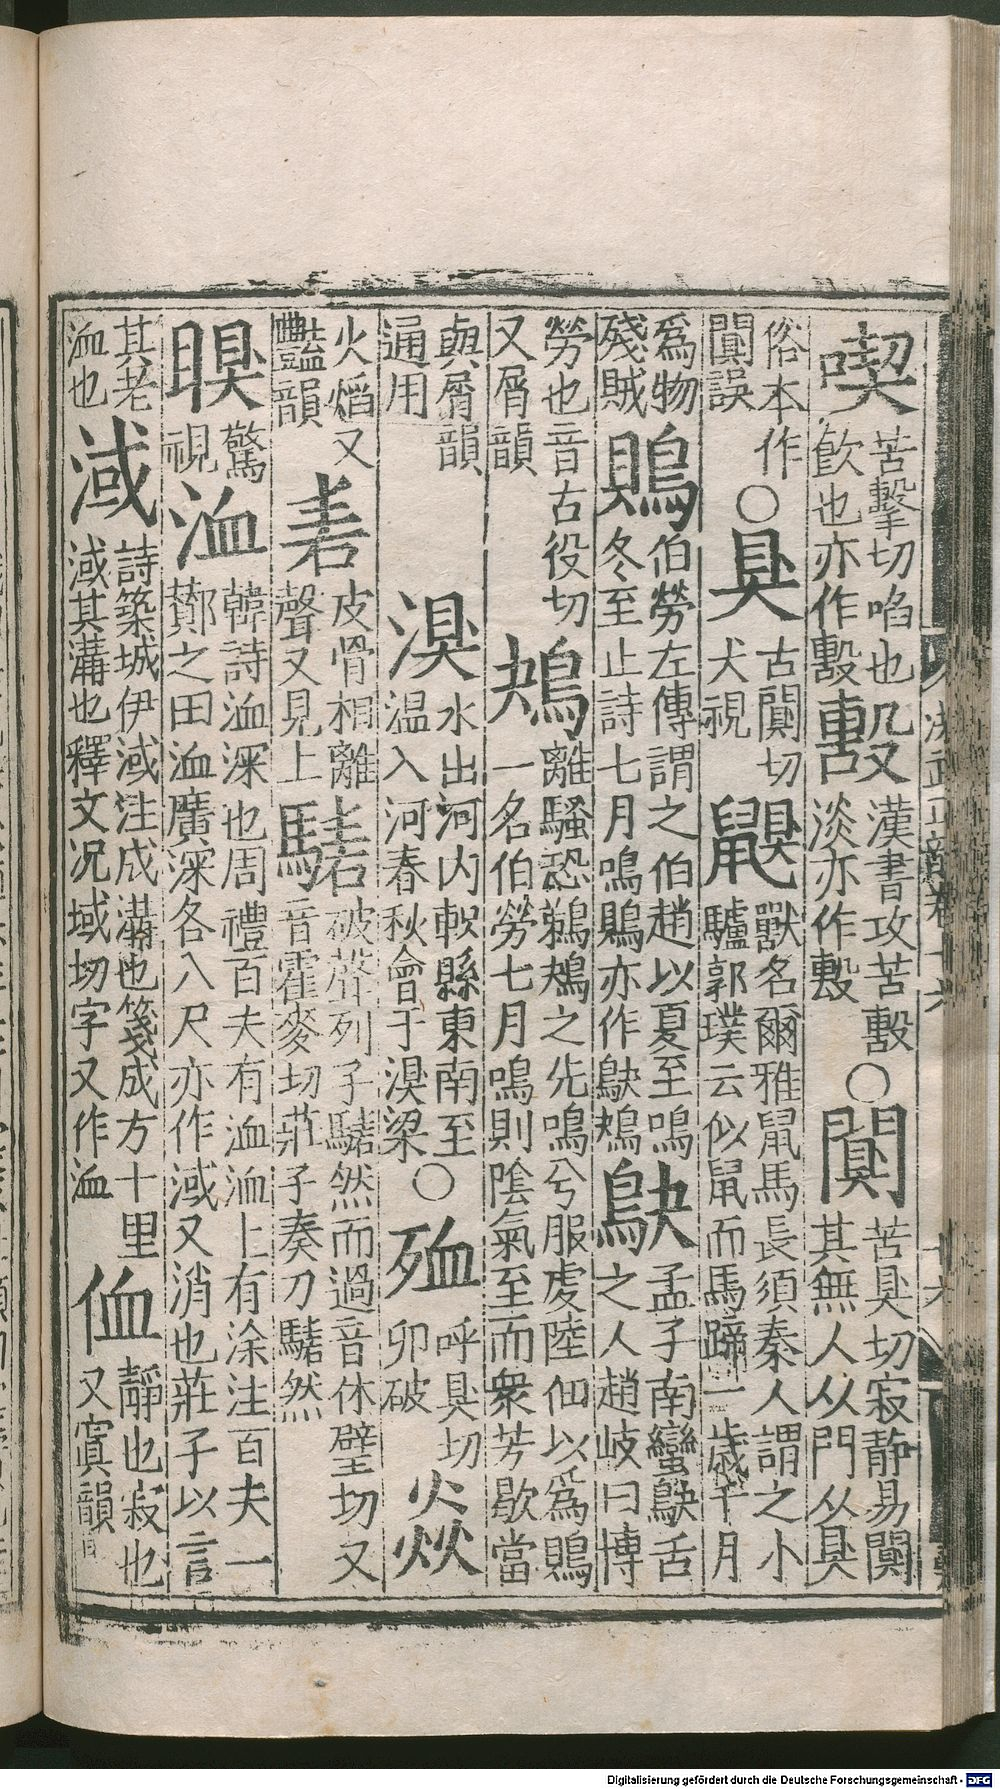 喫 苦擊切啗也飮也亦作毄 毄 漢書攻苦毄淡亦作毄 ○ 闃 苦狊切寂靜易闃其無人从門从狊
俗本作闃誤 ○ 狊 古闃切犬視 鼳 獸名爾雅鼠馬長須秦人謂之小驢郭璞云似鼠而馬蹄一歲千月
爲物殘賊 鶪 伯勞左傳謂之伯趙以夏至鳴冬至止詩七月鳴鶪亦作鴃鴂 鴃 孟子南蠻鴃舌之人趙岐曰博
勞也音古役切又屑韻 鴂 離騷恐鵜鴂之先鳴兮服虔陸佃以爲鶪一名伯勞七月鳴則陰氣至而衆芳歇當
與屑韻通用 湨 水出河内軹縣東南至温入河春秋會于湨梁 ○ 殈 呼狊切卵破 焱
火熖又豔韻 砉 皮骨相離聲又見上 騞 破聲列子騞然而過音休壁切又音霍麥切莊子奏刀騞然
瞁 驚視 洫 韓詩洫深也周禮百夫有洫洫上有涂注百夫一鄭之田洫廣深各八尺亦作淢又消也莊子以言
其老洫也 淢 詩築城伊淢注成溝也箋成方十里淢其溝也釋文况域切字又作洫 侐 靜也寂也又寘韻
Digitalisierung gefördert durch die Deutsche Forschungsgemeinschaft - DFG